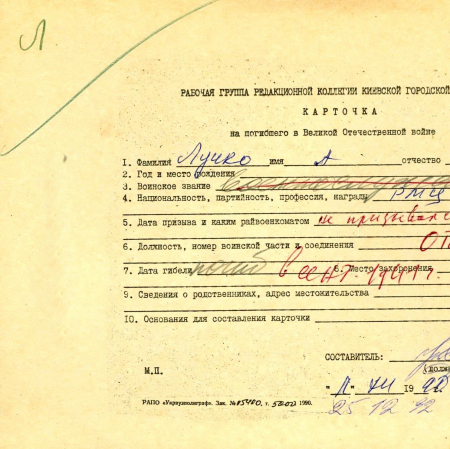 Л
РАБОЧАЯ ГРУППА РЕДАКЦИОННОЙ КОЛЛЕГИИ КИЕВСКОЙ ГОРОДСКОЙ
КАРТОЧКА
на погибшего в Великой Отечественной войне
1. Фамилия Лучко имя А отчество
2. Год и место рождения
3. Воинское звание
4. Национальность, партийность, профессия, награды
5. Дата призыва и каким райвоенкоматом не призывался
6. Должность, номер воинской части и соединения
7. Дата гибели погиб в сент. 1941 г. 8. Место захоронения
9. Сведения о родственниках, адрес местожительства
10. Основания для составления карточки
СОСТАВИТЕЛЬ:
М.П.
"11" VII 1992
РАПО «Укрвузполиграф». Зак. № т. 1990.
25 12 92